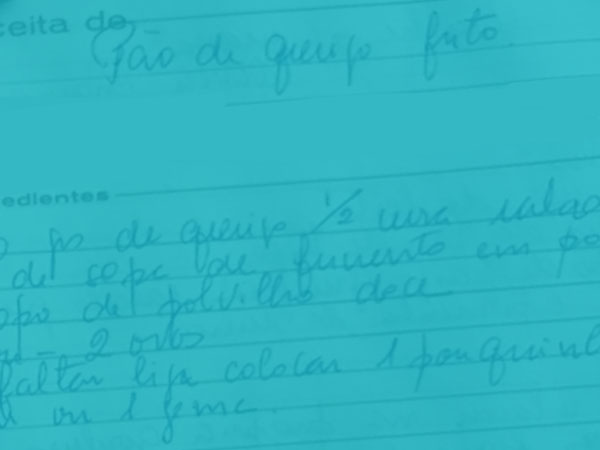 ceita de Pão de queijo frito.
edientes
po de queijo 1/2 cura ralado
de sopa de fumento em po
opo de polvilho doce
- 2 ovos
faltar liga colocar 1 pouquinh
ou 1 gema.